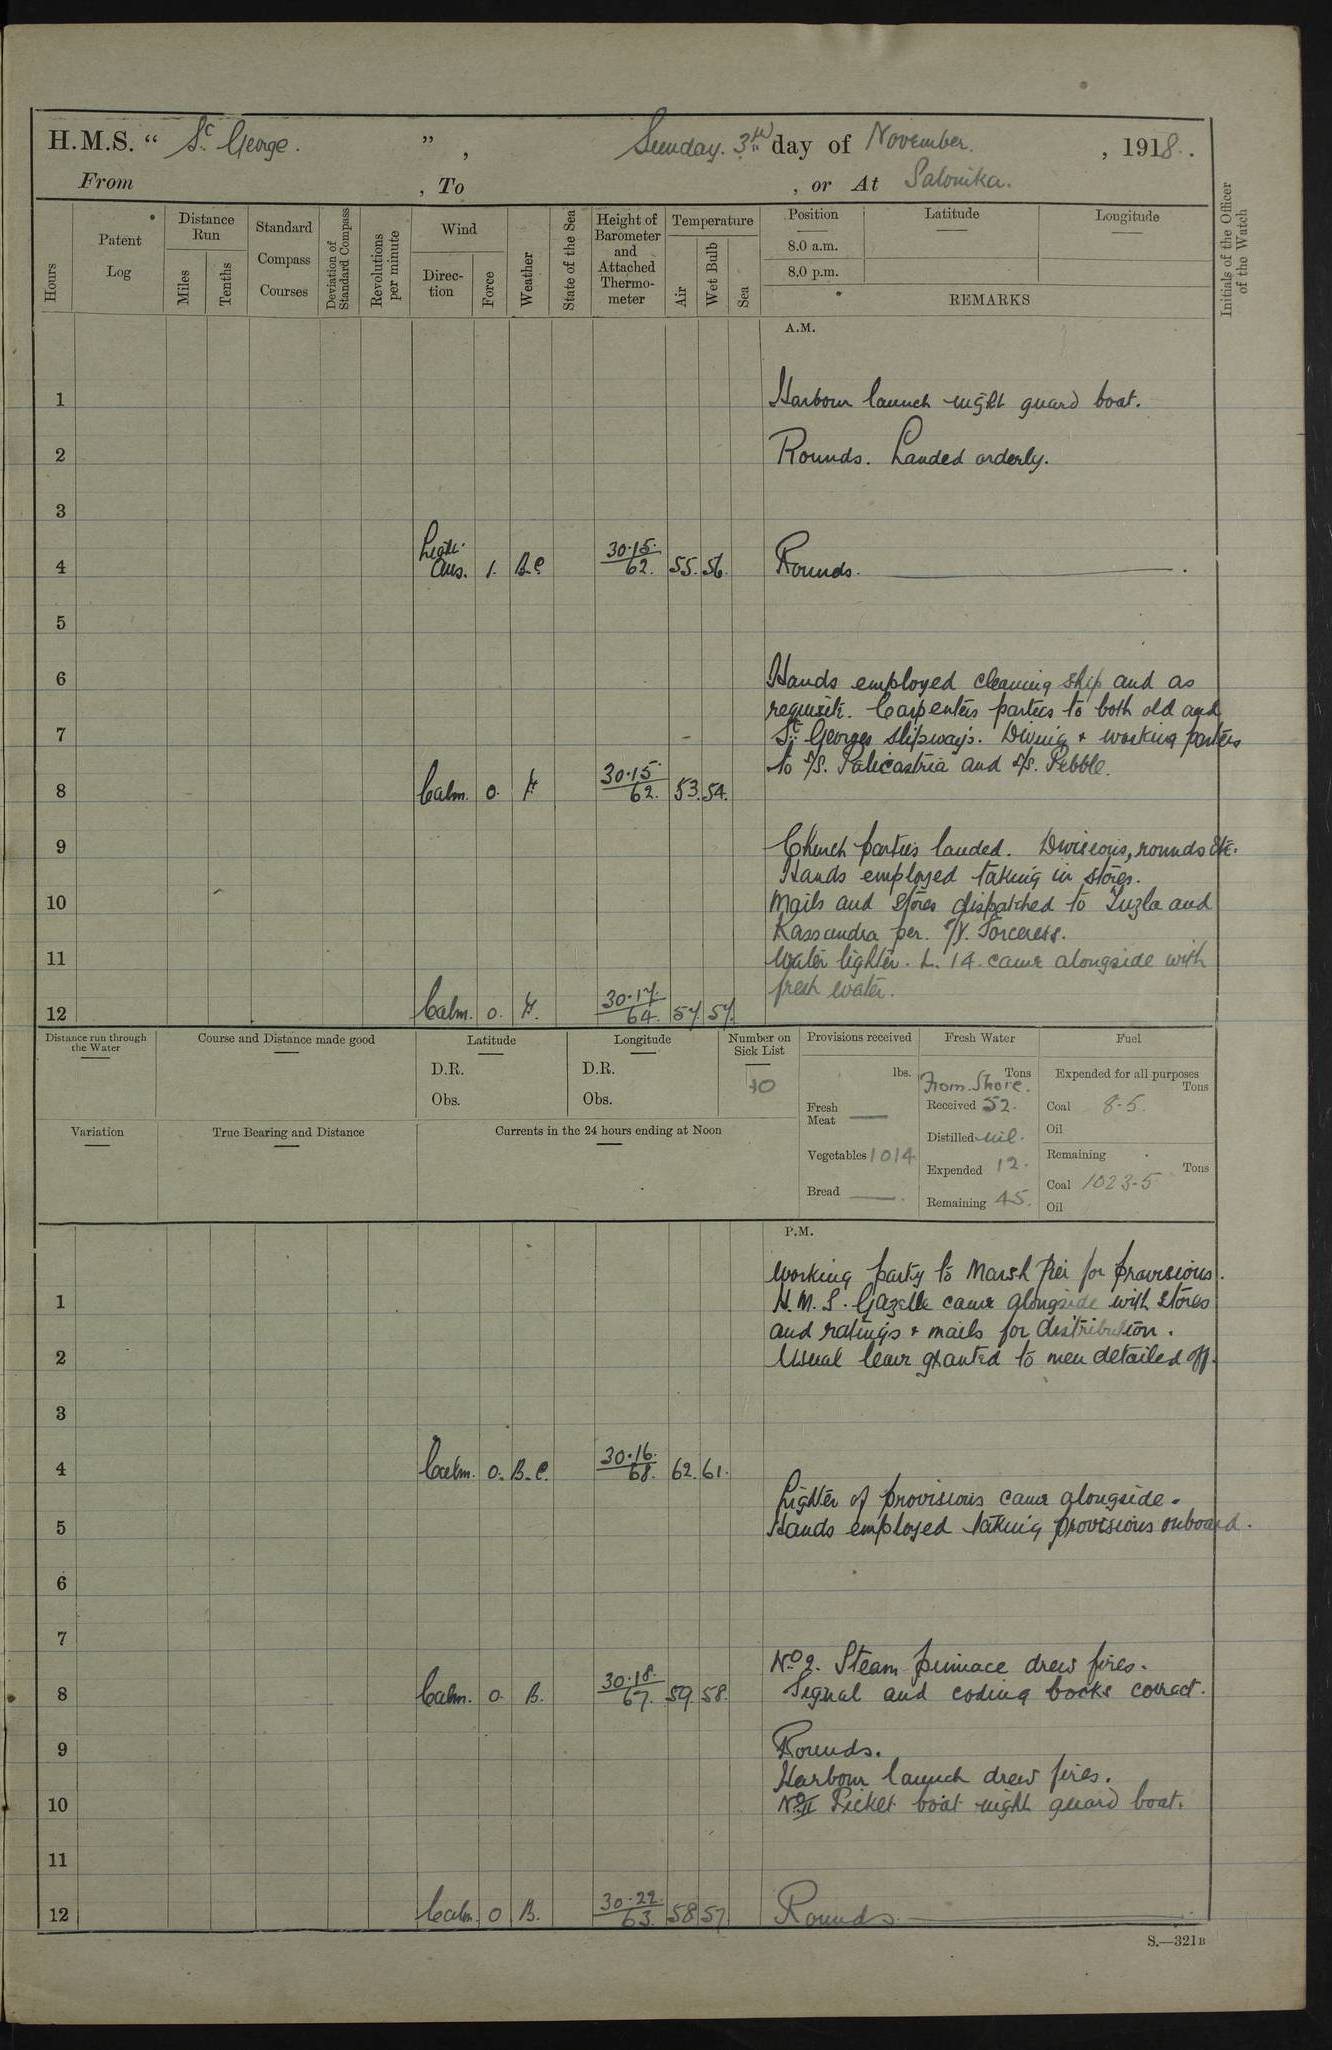 H.M.S. “ St. George. ” , Sunday. 3rd day of November. , 1918.
From , To , or At Salonika.
Hours
Patent Log
Distance Run
Miles
Tenths
Standard Compass Courses
Deviation of Standard Compass
Revolutions per minute
Wind
Direction
Force
Weather
State of the Sea
Height of Barometer and Attached Thermometer
Temperature
Air
Wet Bulb
Sea
Position
8.0 a.m.
8.0 p.m.
Latitude
Longitude
REMARKS
Initials of the Officer of the Watch
A.M.
1 Harbour launch night guard boat.
2 Rounds. Landed orderly.
3
4 Light. Airs. 1. B.C. 30.15. 62. 55. 56. Rounds.
5
6 Hands employed cleaning ship and as
requisite. Carpenters parties to both old and
7 St. Georges slipways. Diving + working parties
to S/S. Palicastria and S/S. Pebble.
8 Calm. 0. F. 30.15. 62. 53. 54.
9 Church parties landed. Divisions, rounds Etc.
Hands employed taking in stores.
10 Mails and Stores dispatched to Tuzla and
Kassandra per. S/Y. Sorceress.
11 Water lighter. L. 14. came alongside with
fresh water.
12 Calm. 0. F. 30.17. 64. 57. 57.
Distance run through the Water
Course and Distance made good
Latitude
D.R.
Obs.
Longitude
D.R.
Obs.
Number on Sick List
10
Provisions received
lbs.
Fresh Meat —
Vegetables 1014
Bread —
Fresh Water
Tons
From Shore.
Received 52.
Distilled nil.
Expended 12.
Remaining 45.
Fuel
Expended for all purposes
Tons
Coal 8-5.
Oil
Remaining
Tons
Coal 1023-5
Oil
Variation
True Bearing and Distance
Currents in the 24 hours ending at Noon
P.M.
Working party to Marsh Pier for provisions.
1 H.M.S. Gazelle came alongside with stores
and ratings + mails for distribution.
2 Usual leave granted to men detailed off.
3
4 Calm. 0. B.C. 30.16. 68. 62. 61.
Lighter of provisions came alongside.
5 Hands employed taking provisions onboard.
6
7
No 2. Steam pinnace drew fires.
8 Calm. 0. B. 30.18. 67. 59. 58. Signal and coding books correct.
9 Rounds.
Harbour launch drew fires.
10 No II Picket boat night guard boat.
11
12 Calm. 0 B. 30.22. 63. 58 57 Rounds.
S.—321B